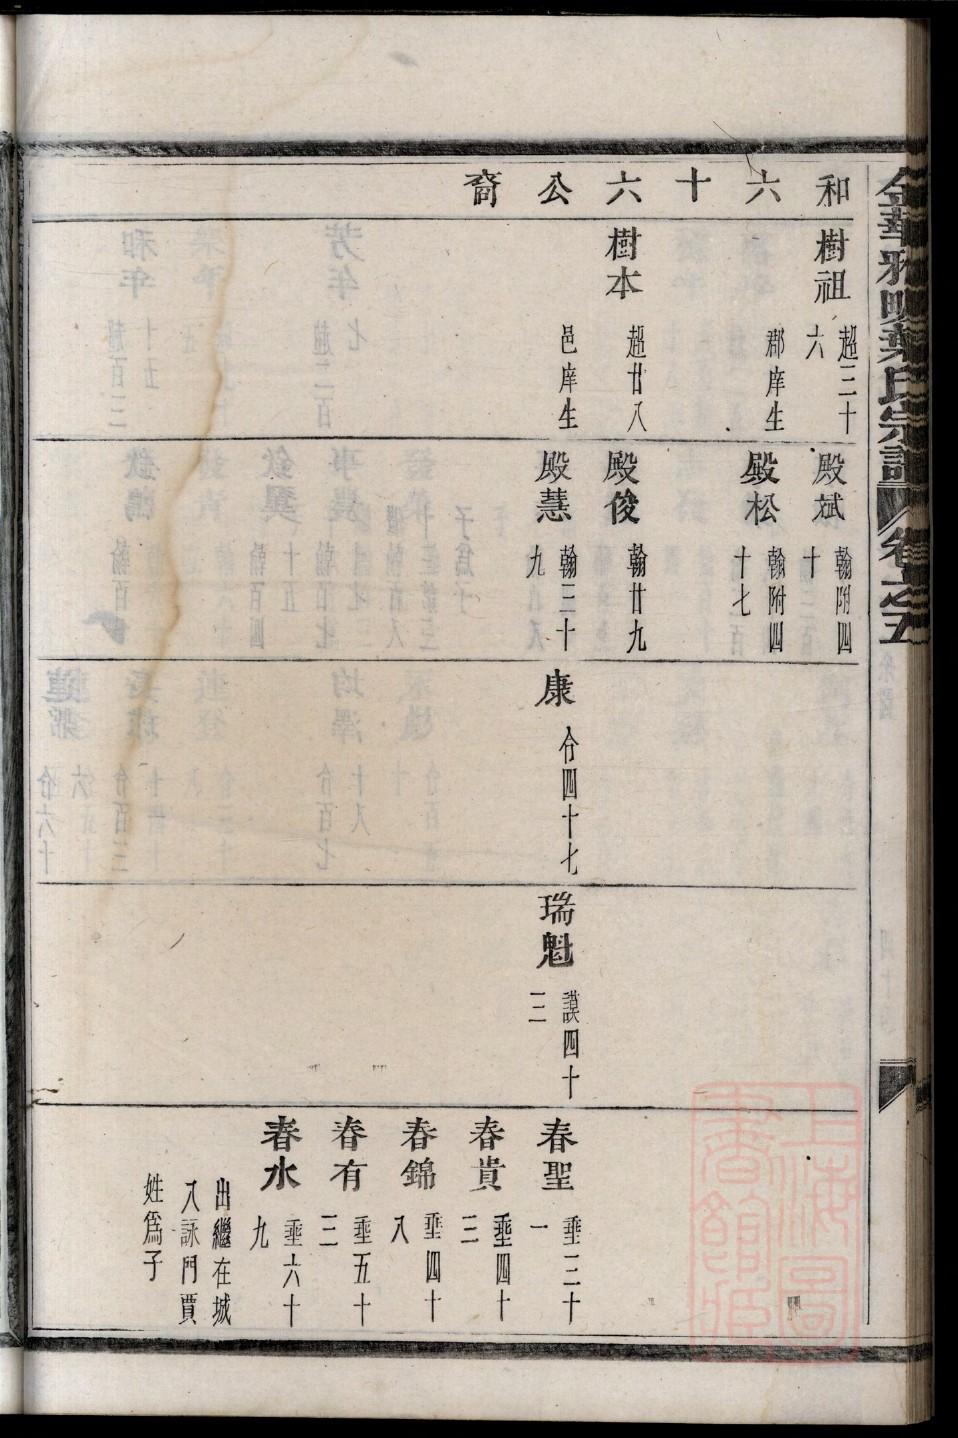 金華雅畈葉氏宗譜 卷之五
和六十六公裔
樹祖 超三十六 郡庠生
樹本 超廿八 邑庠生
殿斌 翰附四十
殿松 翰附四十七
殿俊 翰廿九
殿慧 翰三十九
康 令四十七
瑞魁 謨四十三
春聖 垂三十一
春貴 垂四十三
春錦 垂四十八
春有 垂五十三
春水 垂六十九
出繼在城
八詠門賈
姓爲子
上海圖書館藏